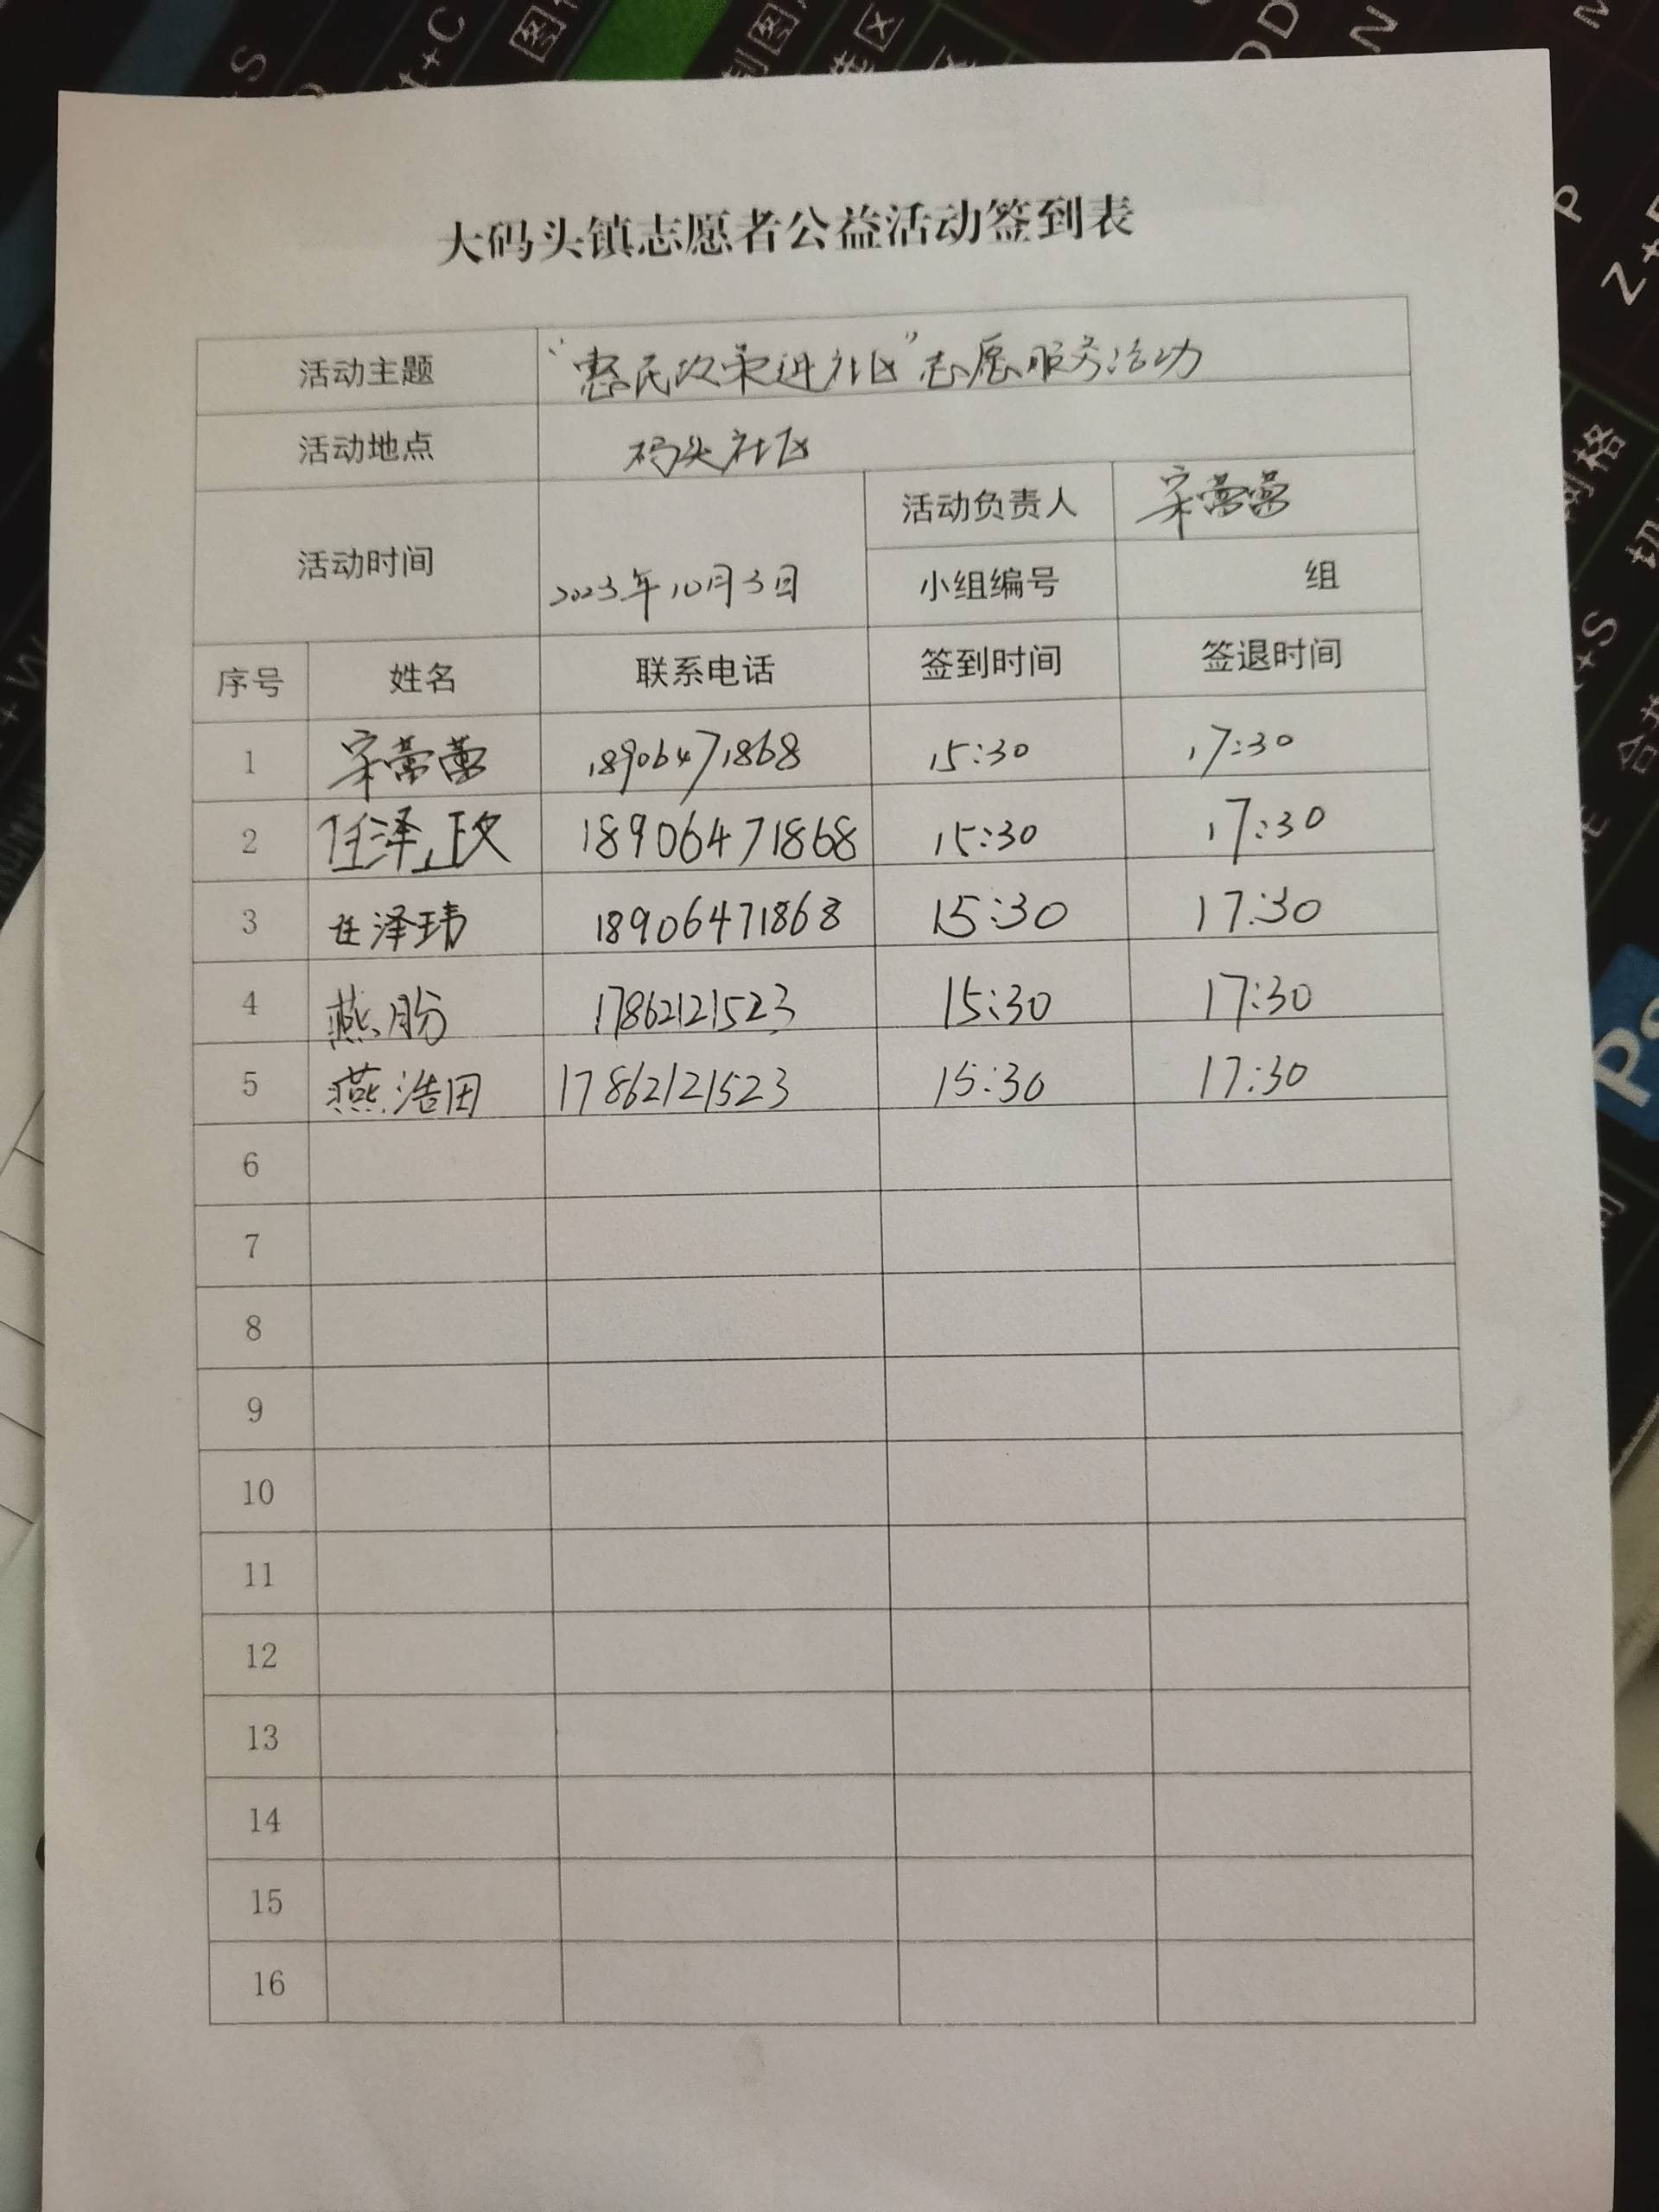 大码头镇志愿者公益活动签到表
活动主题 “惠民政策进社区”志愿服务活动
活动地点 码头社区
活动时间 2023年10月3日 活动负责人 宋蕾蕾
小组编号 组
序号 姓名 联系电话 签到时间 签退时间
1 宋蕾蕾 18906471868 15:30 17:30
2 任泽政 18906471868 15:30 17:30
3 任泽玮 18906471868 15:30 17:30
4 燕盼 17862121523 15:30 17:30
5 燕浩田 17862121523 15:30 17:30
6
7
8
9
10
11
12
13
14
15
16